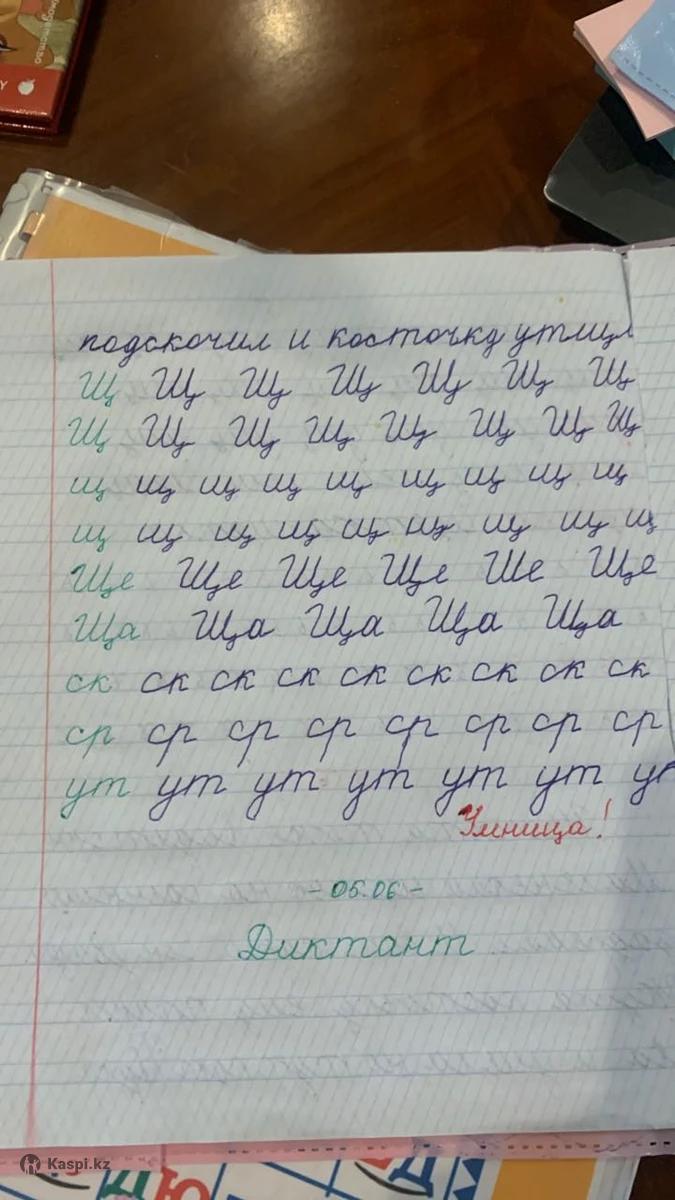 подскочил и косточку утищ
Щ Щ Щ Щ Щ Щ Щ
Щ Щ Щ Щ Щ Щ Щ Щ
щ щ щ щ щ щ щ щ щ
щ щ щ щ щ щ щ щ щ
Ще Ще Ще Ще Ше Ще
Ща Ща Ща Ща Ща
ск ск ск ск ск ск ск ск
ср ср ср ср ср ср ср
ут ут ут ут ут ут ут
Умница!
- 05.06 -
Диктант
Kaspi.kz